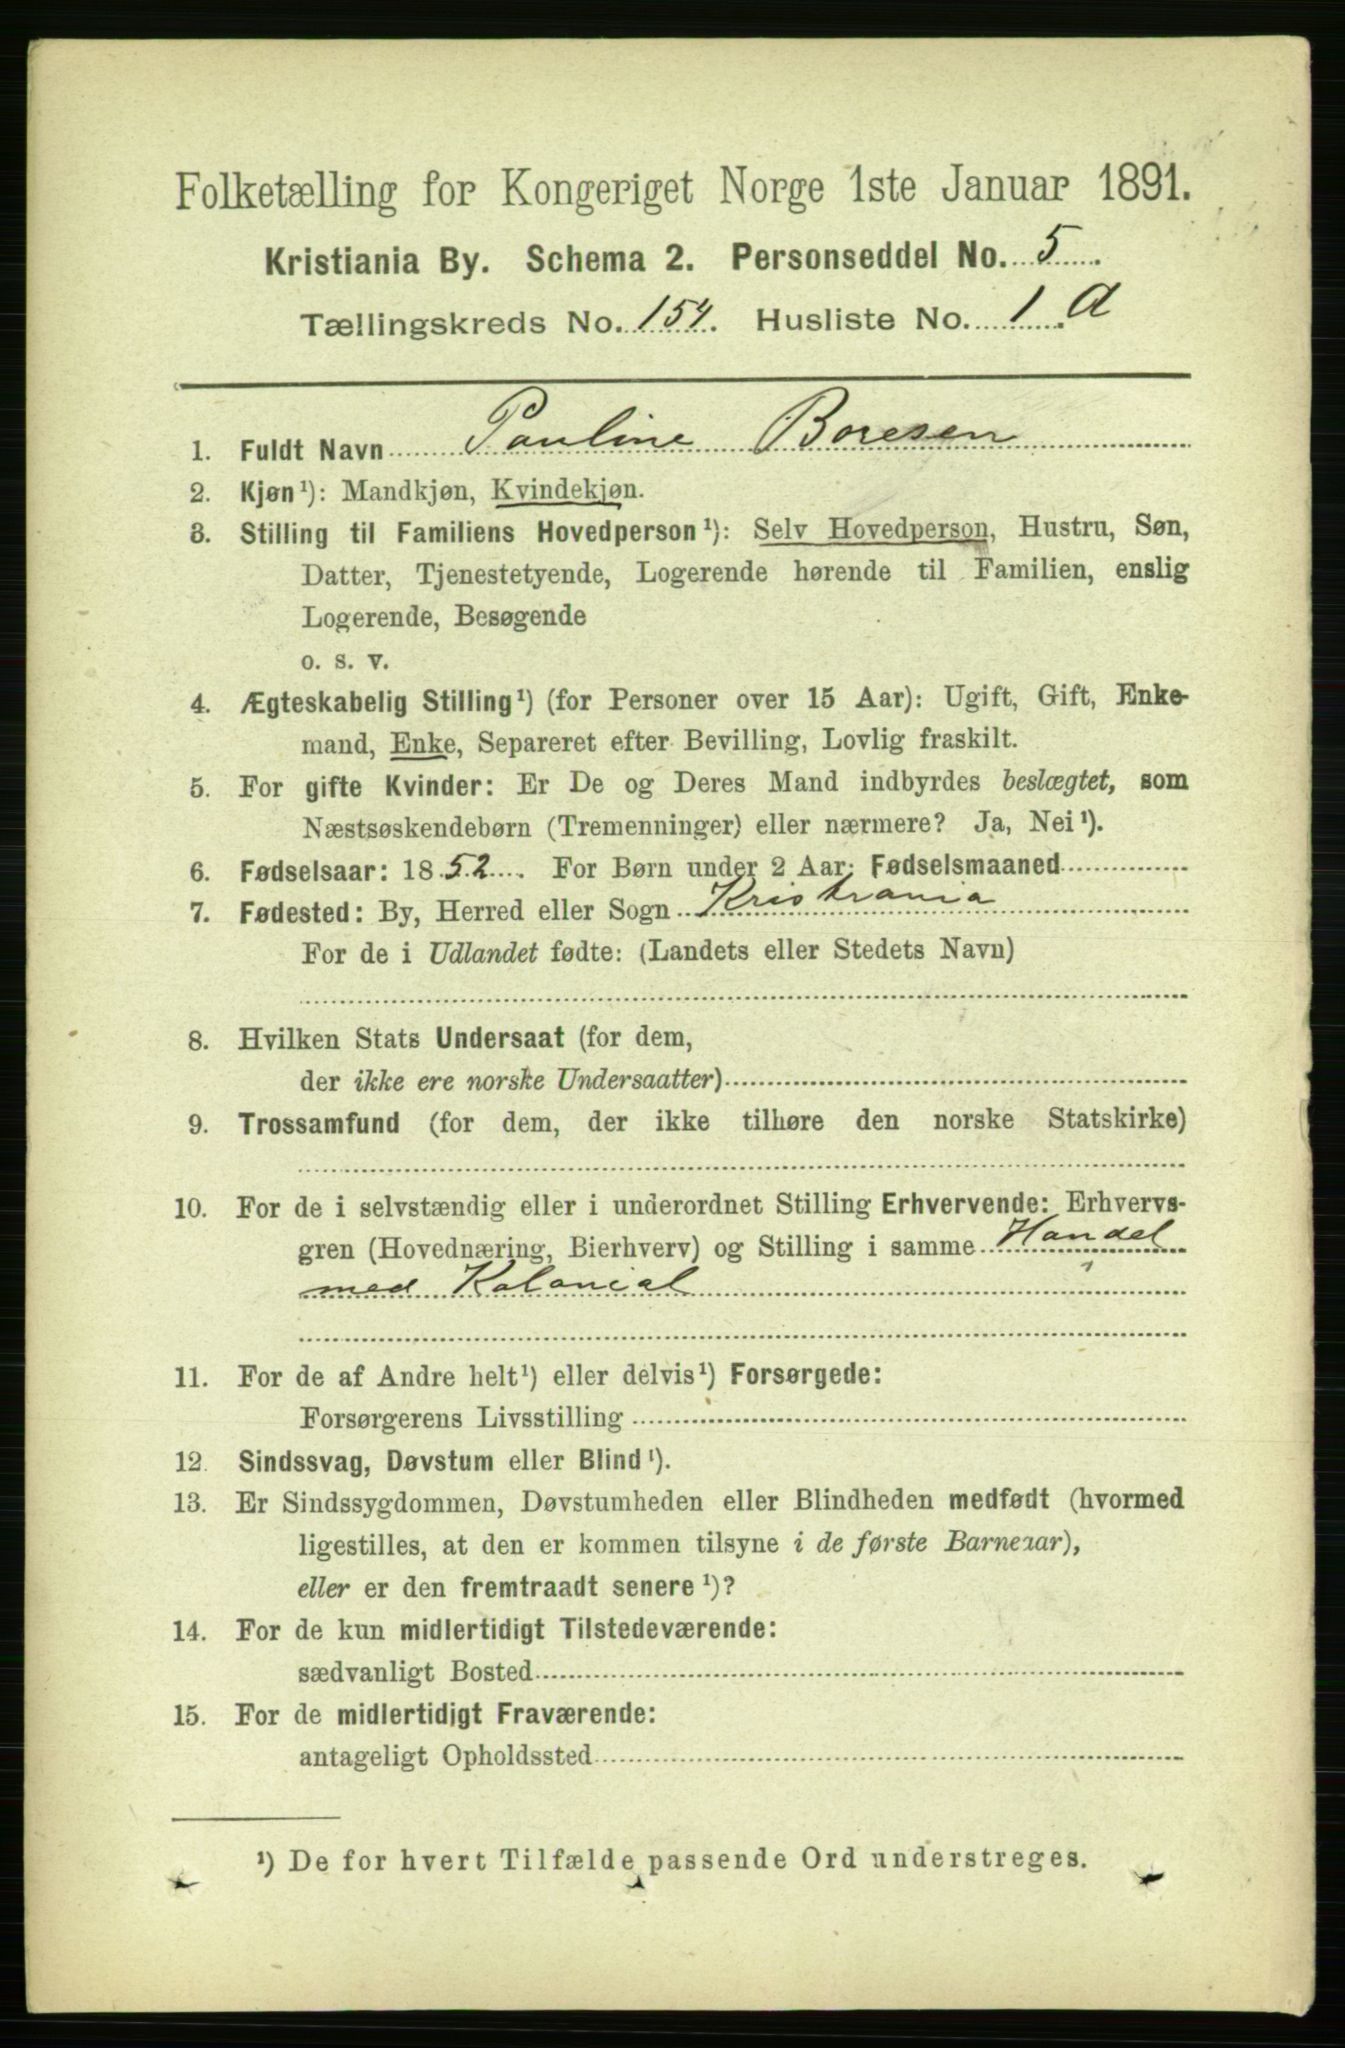 Folketælling for Kongeriget Norge 1ste Januar 1891.
Kristiania By. Schema 2. Personseddel No. 5
Tællingskreds No. 154. Husliste No. 1 A
1. Fuldt Navn Pauline Boresen
2. Kjøn¹): Mandkjøn, Kvindekjøn.
3. Stilling til Familiens Hovedperson¹): Selv Hovedperson, Hustru, Søn,
Datter, Tjenestetyende, Logerende hørende til Familien, enslig
Logerende, Besøgende
o. s. v.
4. Ægteskabelig Stilling¹) (for Personer over 15 Aar): Ugift, Gift, Enke-
mand, Enke, Separeret efter Bevilling, Lovlig fraskilt.
5. For gifte Kvinder: Er De og Deres Mand indbyrdes beslægtet, som
Næstsøskendebørn (Tremenninger) eller nærmere? Ja, Nei¹).
6. Fødselsaar: 1852. For Børn under 2 Aar: Fødselsmaaned
7. Fødested: By, Herred eller Sogn Kristiania
For de i Udlandet fødte: (Landets eller Stedets Navn)
8. Hvilken Stats Undersaat (for dem,
der ikke ere norske Undersaatter)
9. Trossamfund (for dem, der ikke tilhøre den norske Statskirke)
10. For de i selvstændig eller i underordnet Stilling Erhvervende: Erhvervs-
gren (Hovednæring, Bierhverv) og Stilling i samme Handel
med Kolonial
11. For de af Andre helt¹) eller delvis¹) Forsørgede:
Forsørgerens Livsstilling
12. Sindssvag, Døvstum eller Blind¹).
13. Er Sindssygdommen, Døvstumheden eller Blindheden medfødt (hvormed
ligestilles, at den er kommen tilsyne i de første Barneaar),
eller er den fremtraadt senere¹)?
14. For de kun midlertidigt Tilstedeværende:
sædvanligt Bosted
15. For de midlertidigt Fraværende:
antageligt Opholdssted
¹) De for hvert Tilfælde passende Ord understreges.